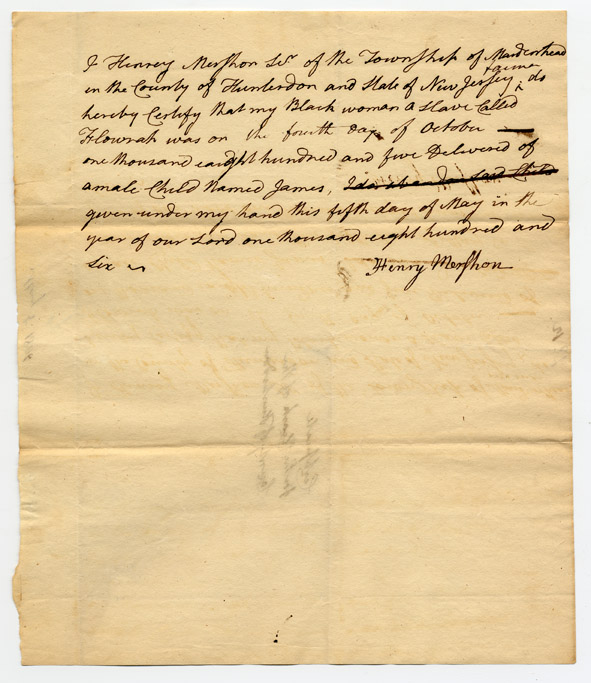 I Henrey Mershon Sr of the Township of Maidenhead
in the County of Hunterdon and State of New Jersey farmer do
hereby Certify that my Black woman a Slave Called
Flowrah was on the fourth Day of October
one thousand eaight hundred and five Delivered of
a male Child Named James, I do abandon said Child
given under my hand this fifth day of May in the
year of our Lord one thousand eight hundred and
Six
Henry Mershon